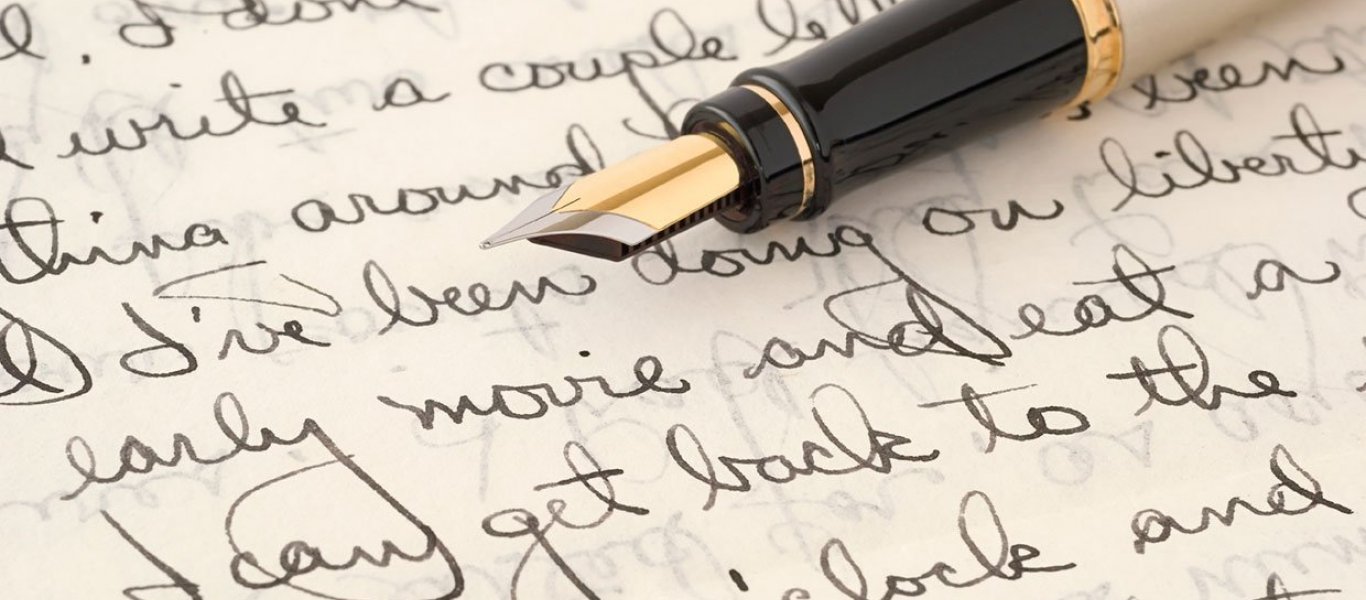 I don't
write a couple
thing around been
I've been doing on liberty
early movie and eat a
I can get back to the
o'clock and